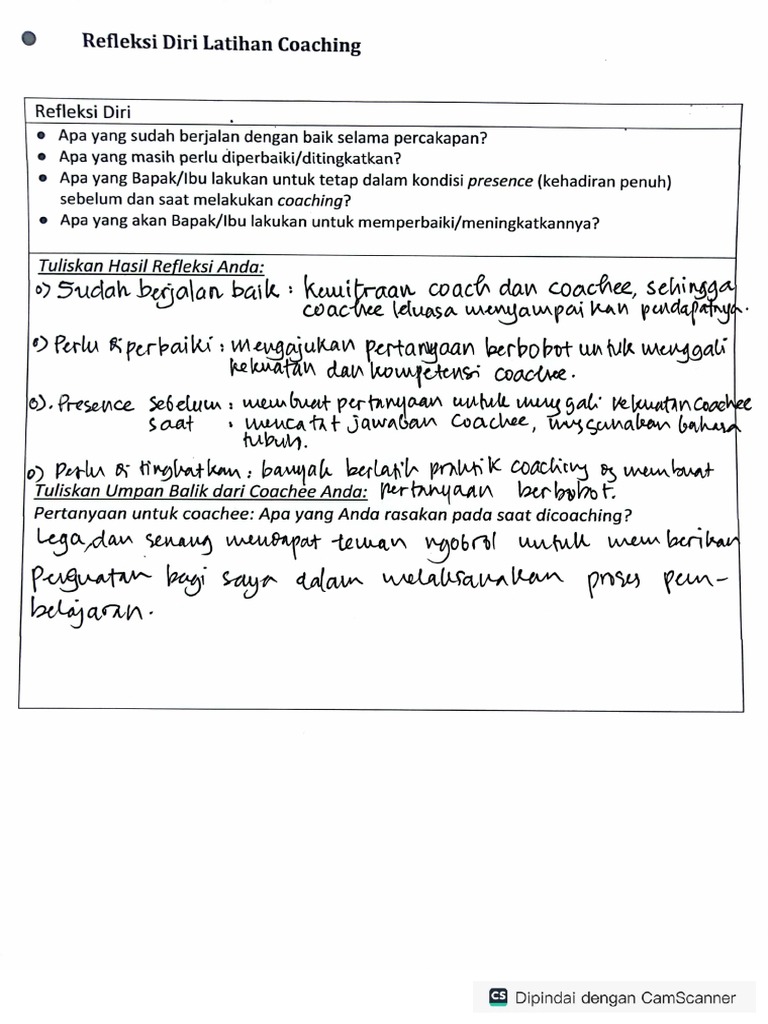 Refleksi Diri Latihan Coaching
Refleksi Diri
• Apa yang sudah berjalan dengan baik selama percakapan?
• Apa yang masih perlu diperbaiki/ditingkatkan?
• Apa yang Bapak/Ibu lakukan untuk tetap dalam kondisi presence (kehadiran penuh)
sebelum dan saat melakukan coaching?
• Apa yang akan Bapak/Ibu lakukan untuk memperbaiki/meningkatkannya?
Tuliskan Hasil Refleksi Anda:
o) Sudah berjalan baik : Kemitraan coach dan coachee, sehingga
coachee leluasa menyampaikan pendapatnya.
o) Perlu diperbaiki : mengajukan pertanyaan berbobot untuk menggali
kekuatan dan kompetensi coachee.
o). Presence sebelum : membuat pertanyaan untuk menggali kekuatan coachee
saat : mencatat jawaban coachee, menggunakan bahasa
tubuh.
o) Perlu ditingkatkan : banyak berlatih praktik coaching dg membuat
pertanyaan berbobot.
Tuliskan Umpan Balik dari Coachee Anda:
Pertanyaan untuk coachee: Apa yang Anda rasakan pada saat dicoaching?
Lega, dan senang mendapat teman ngobrol untuk memberikan
penguatan bagi saya dalam melaksanakan proses pem-
belajaran.
CS Dipindai dengan CamScanner